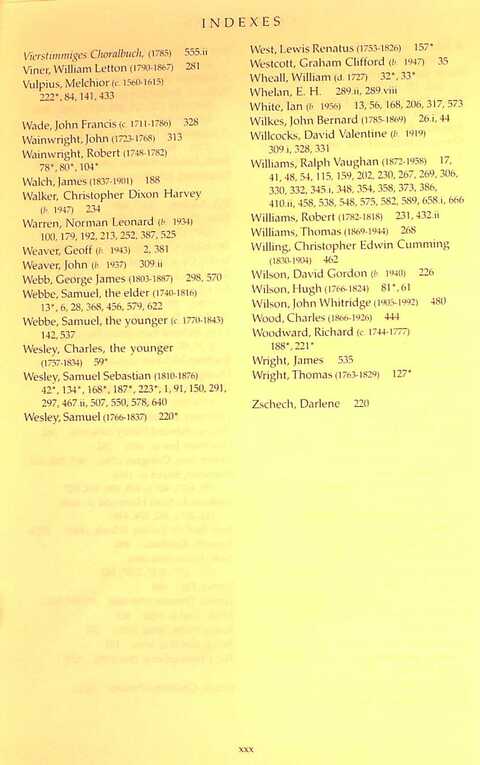 INDEXES
Vierstimmiges Choralbuch, (1785) 555.ii
Viner, William Letton (1790-1867) 281
Vulpius, Melchior (c. 1560-1615)
222*, 84, 141, 433
Wade, John Francis (c. 1711-1786) 328
Wainwright, John (1723-1768) 313
Wainwright, Robert (1748-1782)
78*, 80*, 104*
Walch, James (1837-1901) 188
Walker, Christopher Dixon Harvey
(b. 1947) 234
Warren, Norman Leonard (b. 1934)
100, 179, 192, 213, 252, 387, 525
Weaver, Geoff (b. 1943) 2, 381
Weaver, John (b. 1937) 309.ii
Webb, George James (1803-1887) 298, 570
Webbe, Samuel, the elder (1740-1816)
13*, 6, 28, 368, 456, 579, 622
Webbe, Samuel, the younger (c. 1770-1843)
142, 537
Wesley, Charles, the younger
(1757-1834) 59*
Wesley, Samuel Sebastian (1810-1876)
42*, 134*, 168*, 187*, 223*, 1, 91, 150, 291,
297, 467.ii, 507, 550, 578, 640
Wesley, Samuel (1766-1837) 220*
West, Lewis Renatus (1753-1826) 157*
Westcott, Graham Clifford (b. 1947) 35
Wheall, William (d. 1727) 32*, 33*
Whelan, E. H. 289.ii, 289.viii
White, Ian (b. 1956) 13, 56, 168, 206, 317, 573
Wilkes, John Bernard (1785-1869) 26.i, 44
Willcocks, David Valentine (b. 1919)
309.i, 328, 331
Williams, Ralph Vaughan (1872-1958) 17,
41, 48, 54, 115, 159, 202, 230, 267, 269, 306,
330, 332, 345.i, 348, 354, 358, 373, 386,
410.ii, 458, 538, 548, 575, 582, 589, 658.i, 666
Williams, Robert (1782-1818) 231, 432.ii
Williams, Thomas (1869-1944) 268
Willing, Christopher Edwin Cumming
(1830-1904) 462
Wilson, David Gordon (b. 1940) 226
Wilson, Hugh (1766-1824) 81*, 61
Wilson, John Whitridge (1905-1992) 480
Wood, Charles (1866-1926) 444
Woodward, Richard (c. 1744-1777)
188*, 221*
Wright, James 535
Wright, Thomas (1763-1829) 127*
Zschech, Darlene 220
xxx